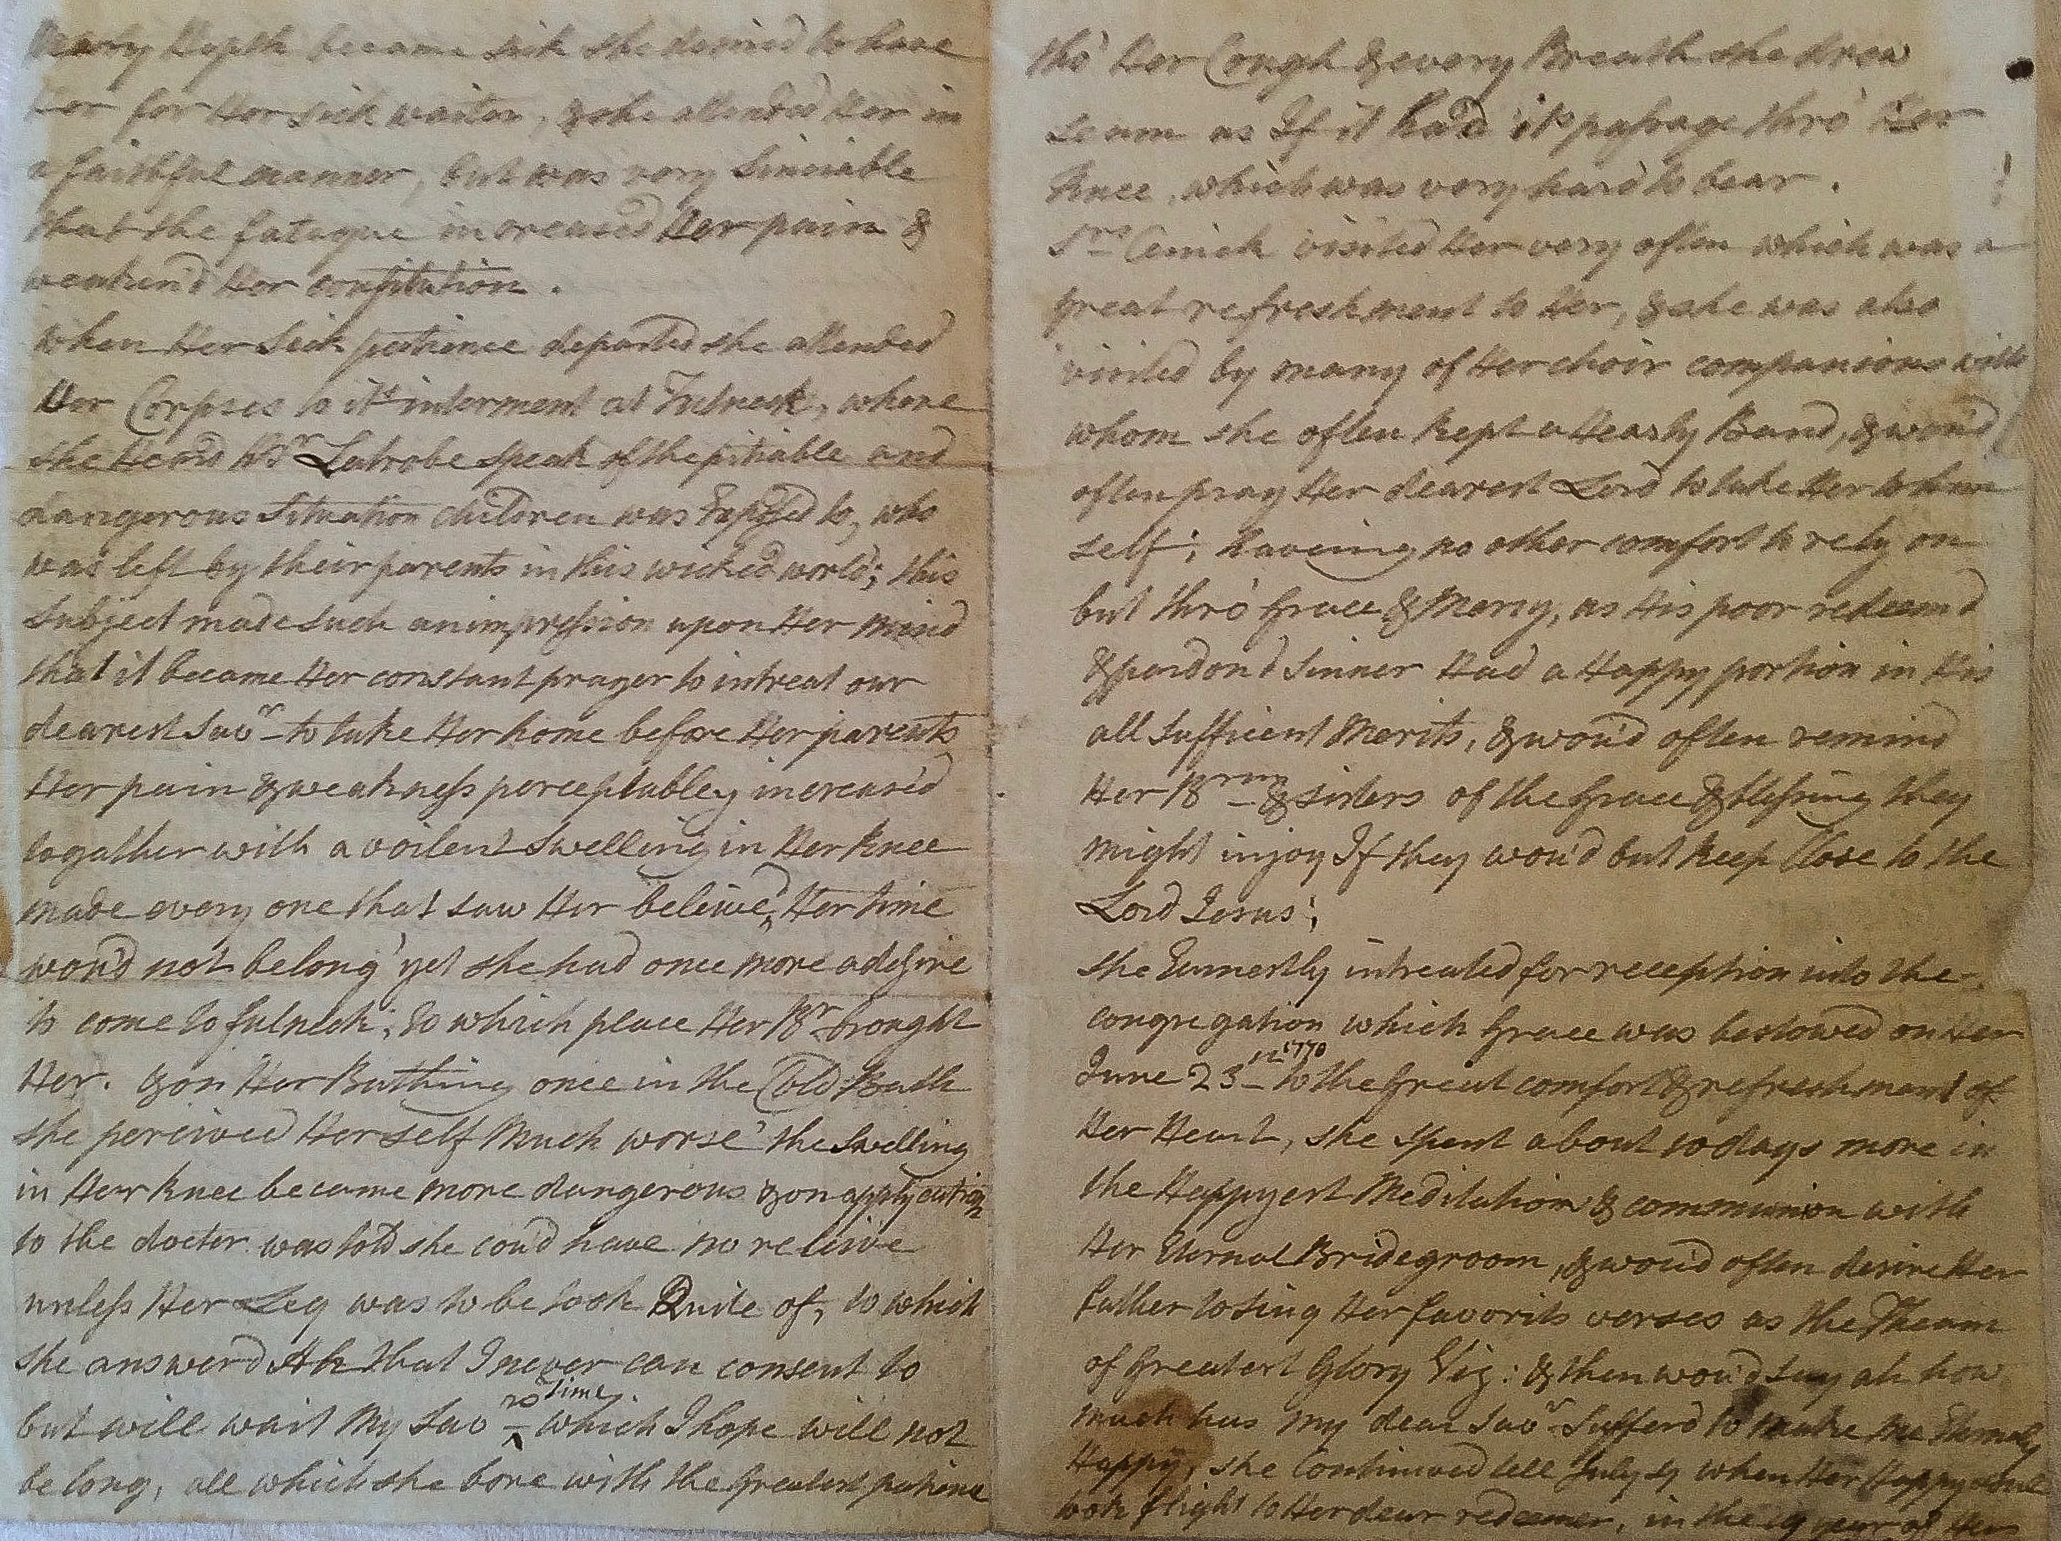 became sick she desired to have
for Her sick waiter, & she attended Her in
a faithful manner, but was very Sinciable
that the fatague increased Her pain &
weakend Her constitution.
when Her Sick patience departed she attended
Her Corpses to its interment at Fulneck, where
she Heard Br Latrobe speak of the pitiable and
dangerous Situation children was Exposed to, who
was left by their parents in this wicked world; this
Subject made such an impression upon Her mind
that it became Her constant prayer to intreat our
dearest Savr to take Her home before Her parents
Her pain & weakness perceptabley increased
togather with a voilent Swelling in Her knee
made every one that saw Her beleived, Her time
wou'd not be long yet she had once more a desire
to come to fulneck; to which place Her Br brought
Her. & on Her Bathing once in the Cold Bath
she perceived Herself Much worse the Swelling
in Her knee became more dangerous & on applycation
to the doctor was told she cou'd have no releive
unless Her Leg was to be took Quite of, to which
she answerd Ah that I never can consent to
but will wait My Savrs Time which I hope will not
be long, all which she bore with the Greatest patience
tho' Her Cough & every Breath she drew
seam as If it had its passage thro' Her
knee, which was very hard to bear.
Srs Cenick visited Her very often which was a
great refreshment to Her, & she was also
visited by many of Her choir companions with
whom she often kept a Hearty Band, & wou'd
often pray Her dearest Lord to take Her to him
self; haveing no other comfort to rely on
but thro' Grace & Mercy, as His poor redeem'd
& pardond Sinner Had a Happy portion in His
all Sufficent Merits, & wou'd often remind
Her Brn & sisters of the Grace & Blessing they
might injoy If they wou'd but keep Close to the
Lord Jesus;
she Earnestly intreated for reception into the
congregation which Grace was bestowed on Her
June 23 1770 to the Great comfort & refreshment of
Her Heart, she spent about 10 days more in
the Happyest Meditation & communion with
Her Eternal Bridegroom, & wou'd often desire Her
father to sing Her favorits verses as the Theam
of Greatest Glory Viz: & then wou'd say ah how
much has my dear Savr Sufferd to make me Eternaly
Happy, she Continued till July when Her Happy soul
took flight to Her dear redeemer, in the 19 year of Her